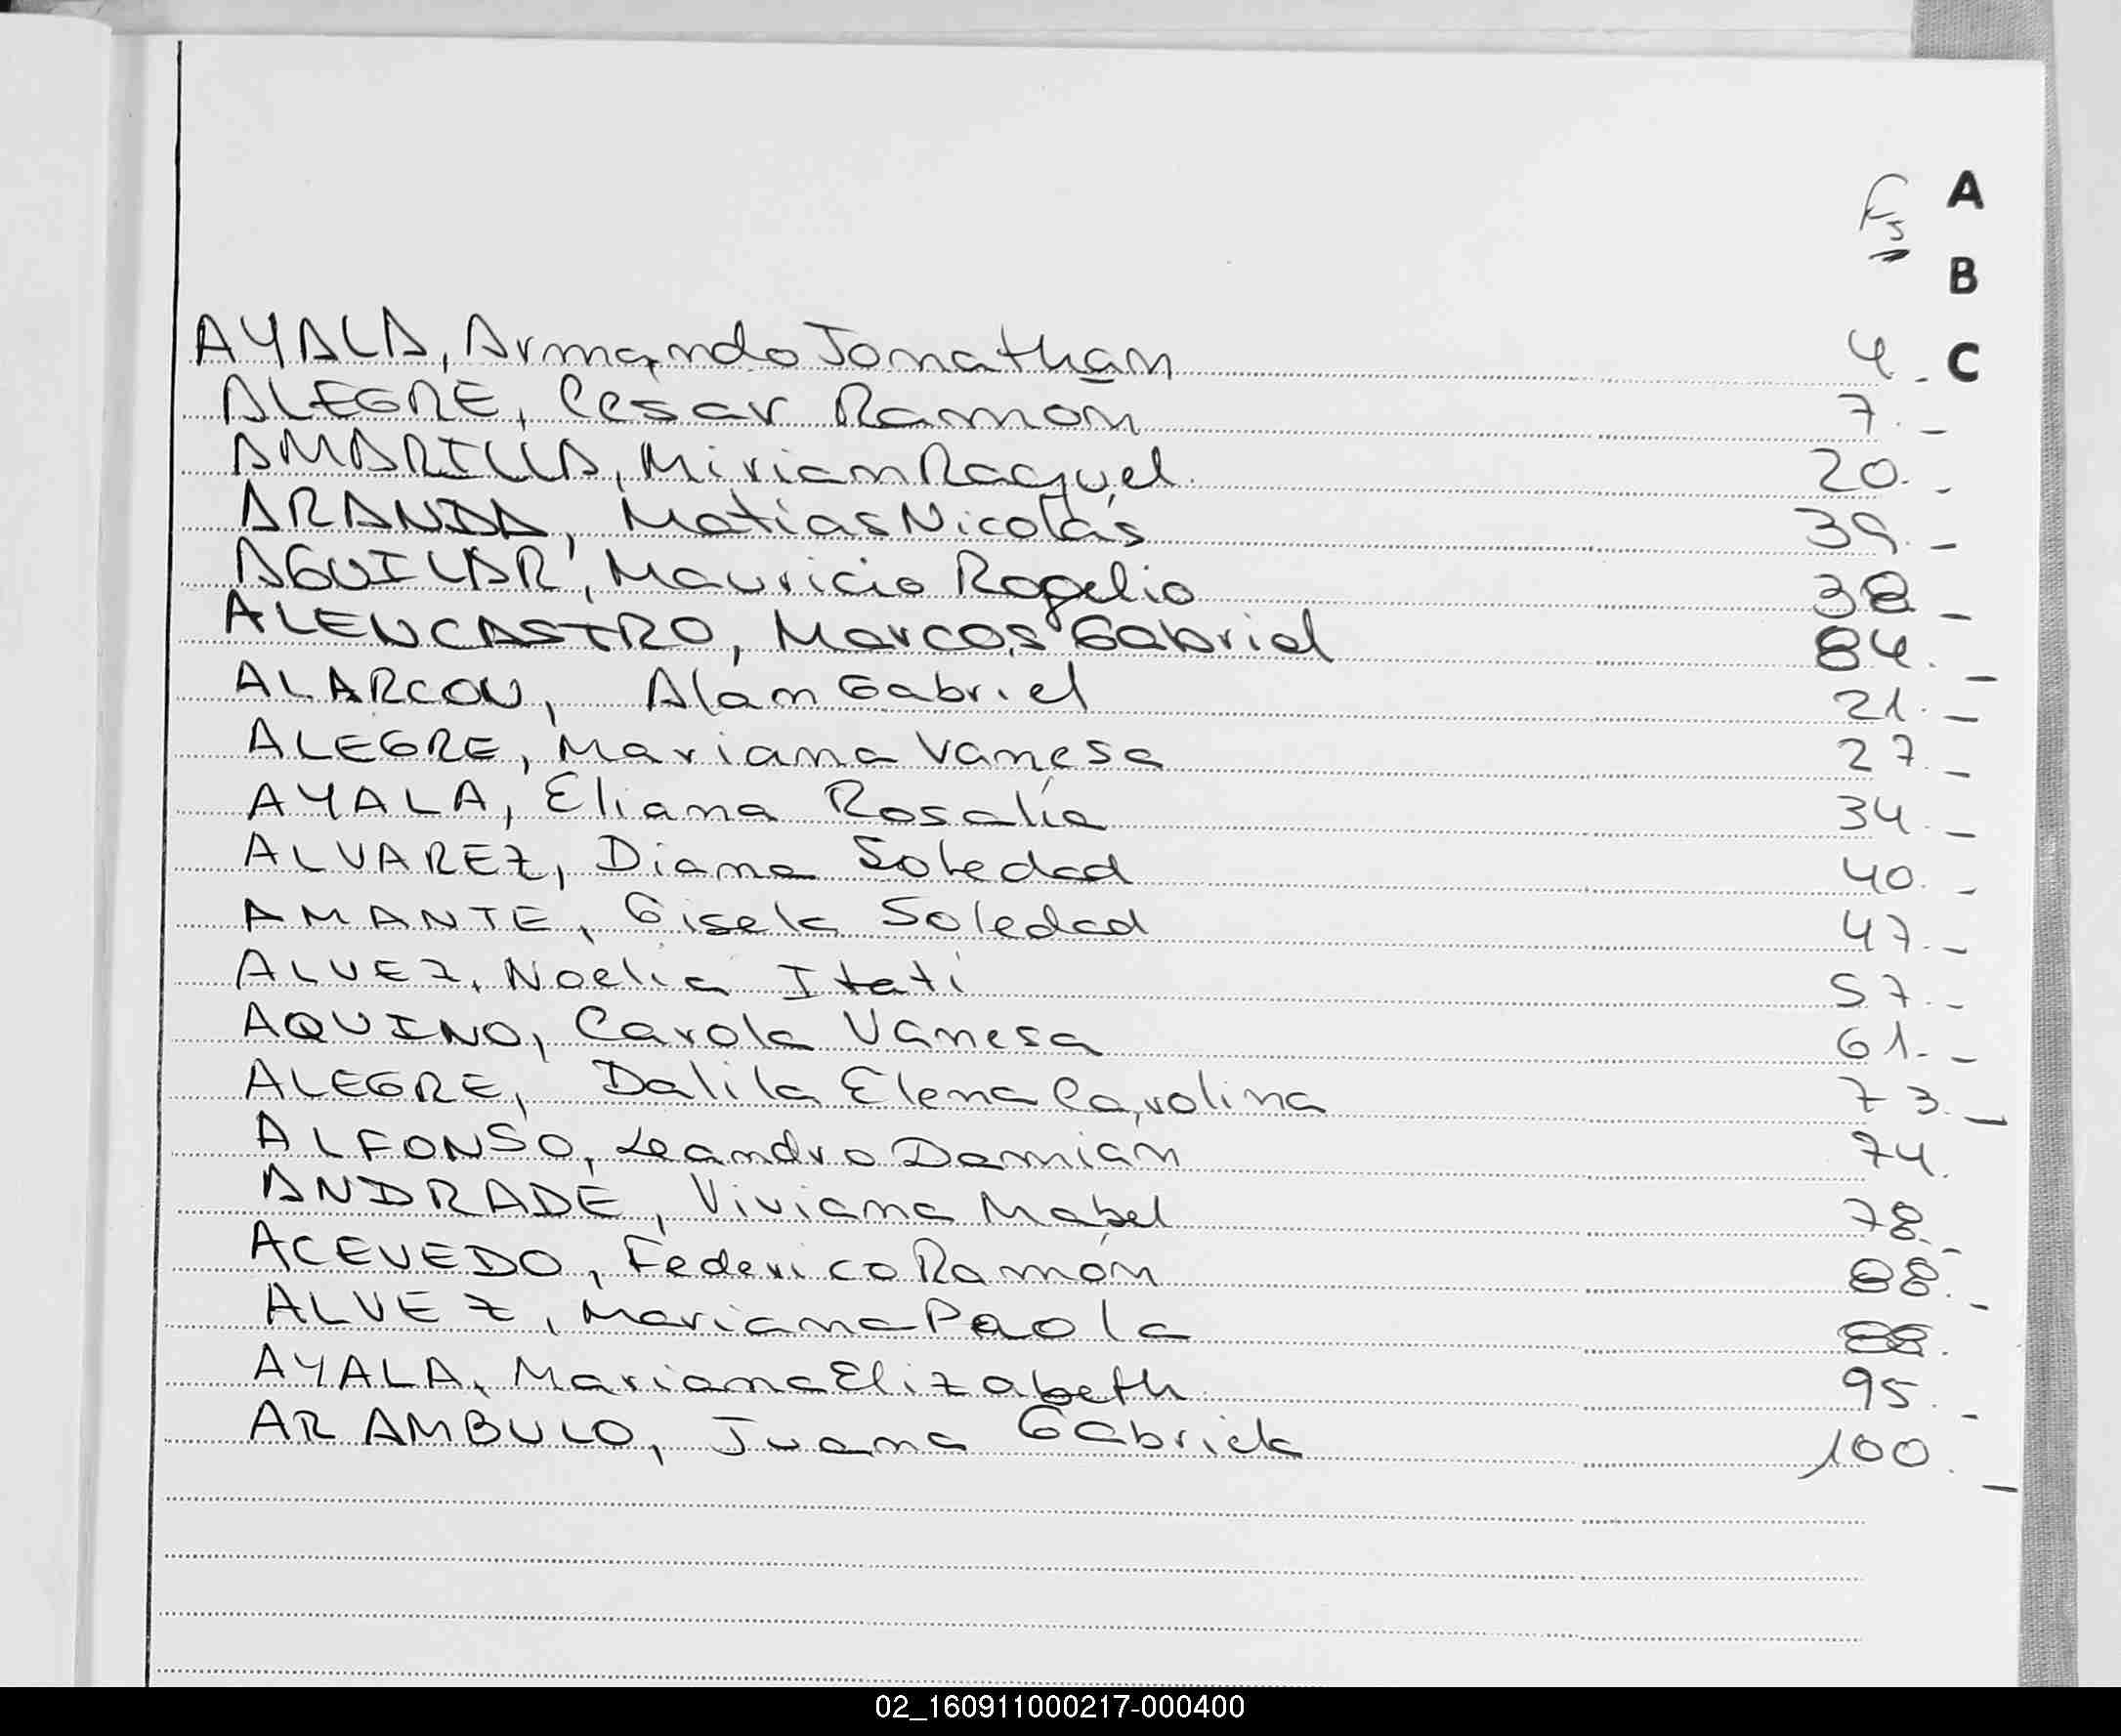 Fs A
B
AYALA, Armando Jonathan 4.- C
ALEGRE, Cesar Ramon 7.-
AMARILLA, Miriam Raquel 20.-
ARANDA, Matías Nicolás 39.-
AGUILAR, Mauricio Rogelio 38.-
ALENCASTRO, Marcos Gabriel 84.-
ALARCON, Alan Gabriel 21.-
ALEGRE, Mariana Vanesa 27.-
AYALA, Eliana Rosalía 34.-
ALVAREZ, Diana Soledad 40.-
AMANTE, Gisela Soledad 47.-
ALVEZ, Noelia Itatí 57.-
AQUINO, Carola Vanesa 61.-
ALEGRE, Dalila Elena Carolina 73.-
ALFONSO, Leandro Damian 74.
ANDRADE, Viviana Mabel 78.-
ACEVEDO, Federico Ramón 88.-
ALVEZ, Mariana Paola 88.
AYALA, Mariana Elizabeth 95.-
ARAMBULO, Juana Gabriela 100.-
02_160911000217-000400